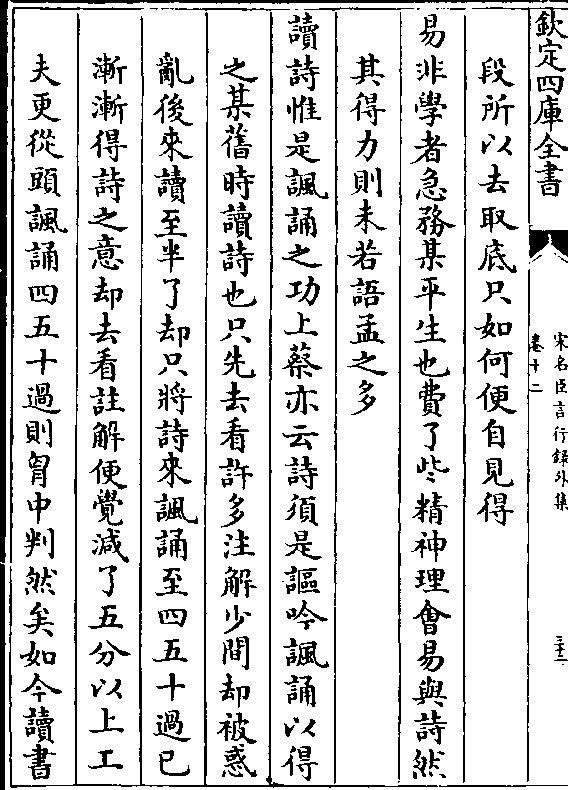 欽定四庫全書
宋名臣言行錄外集
卷十二
三十二
段所以去取底只如何便自見得
易非學者急務某平生也費了些精神理會易與詩然
其得力則未若語孟之多
讀詩惟是諷誦之功上蔡亦云詩須是謳吟諷誦以得
之某舊時讀詩也只先去看許多注解少間却被惑
亂後來讀至半了却只將詩來諷誦至四五十過已
漸漸得詩之意却去看註解便覺減了五分以上工
夫更從頭諷誦四五十過則胷中判然矣如今讀書